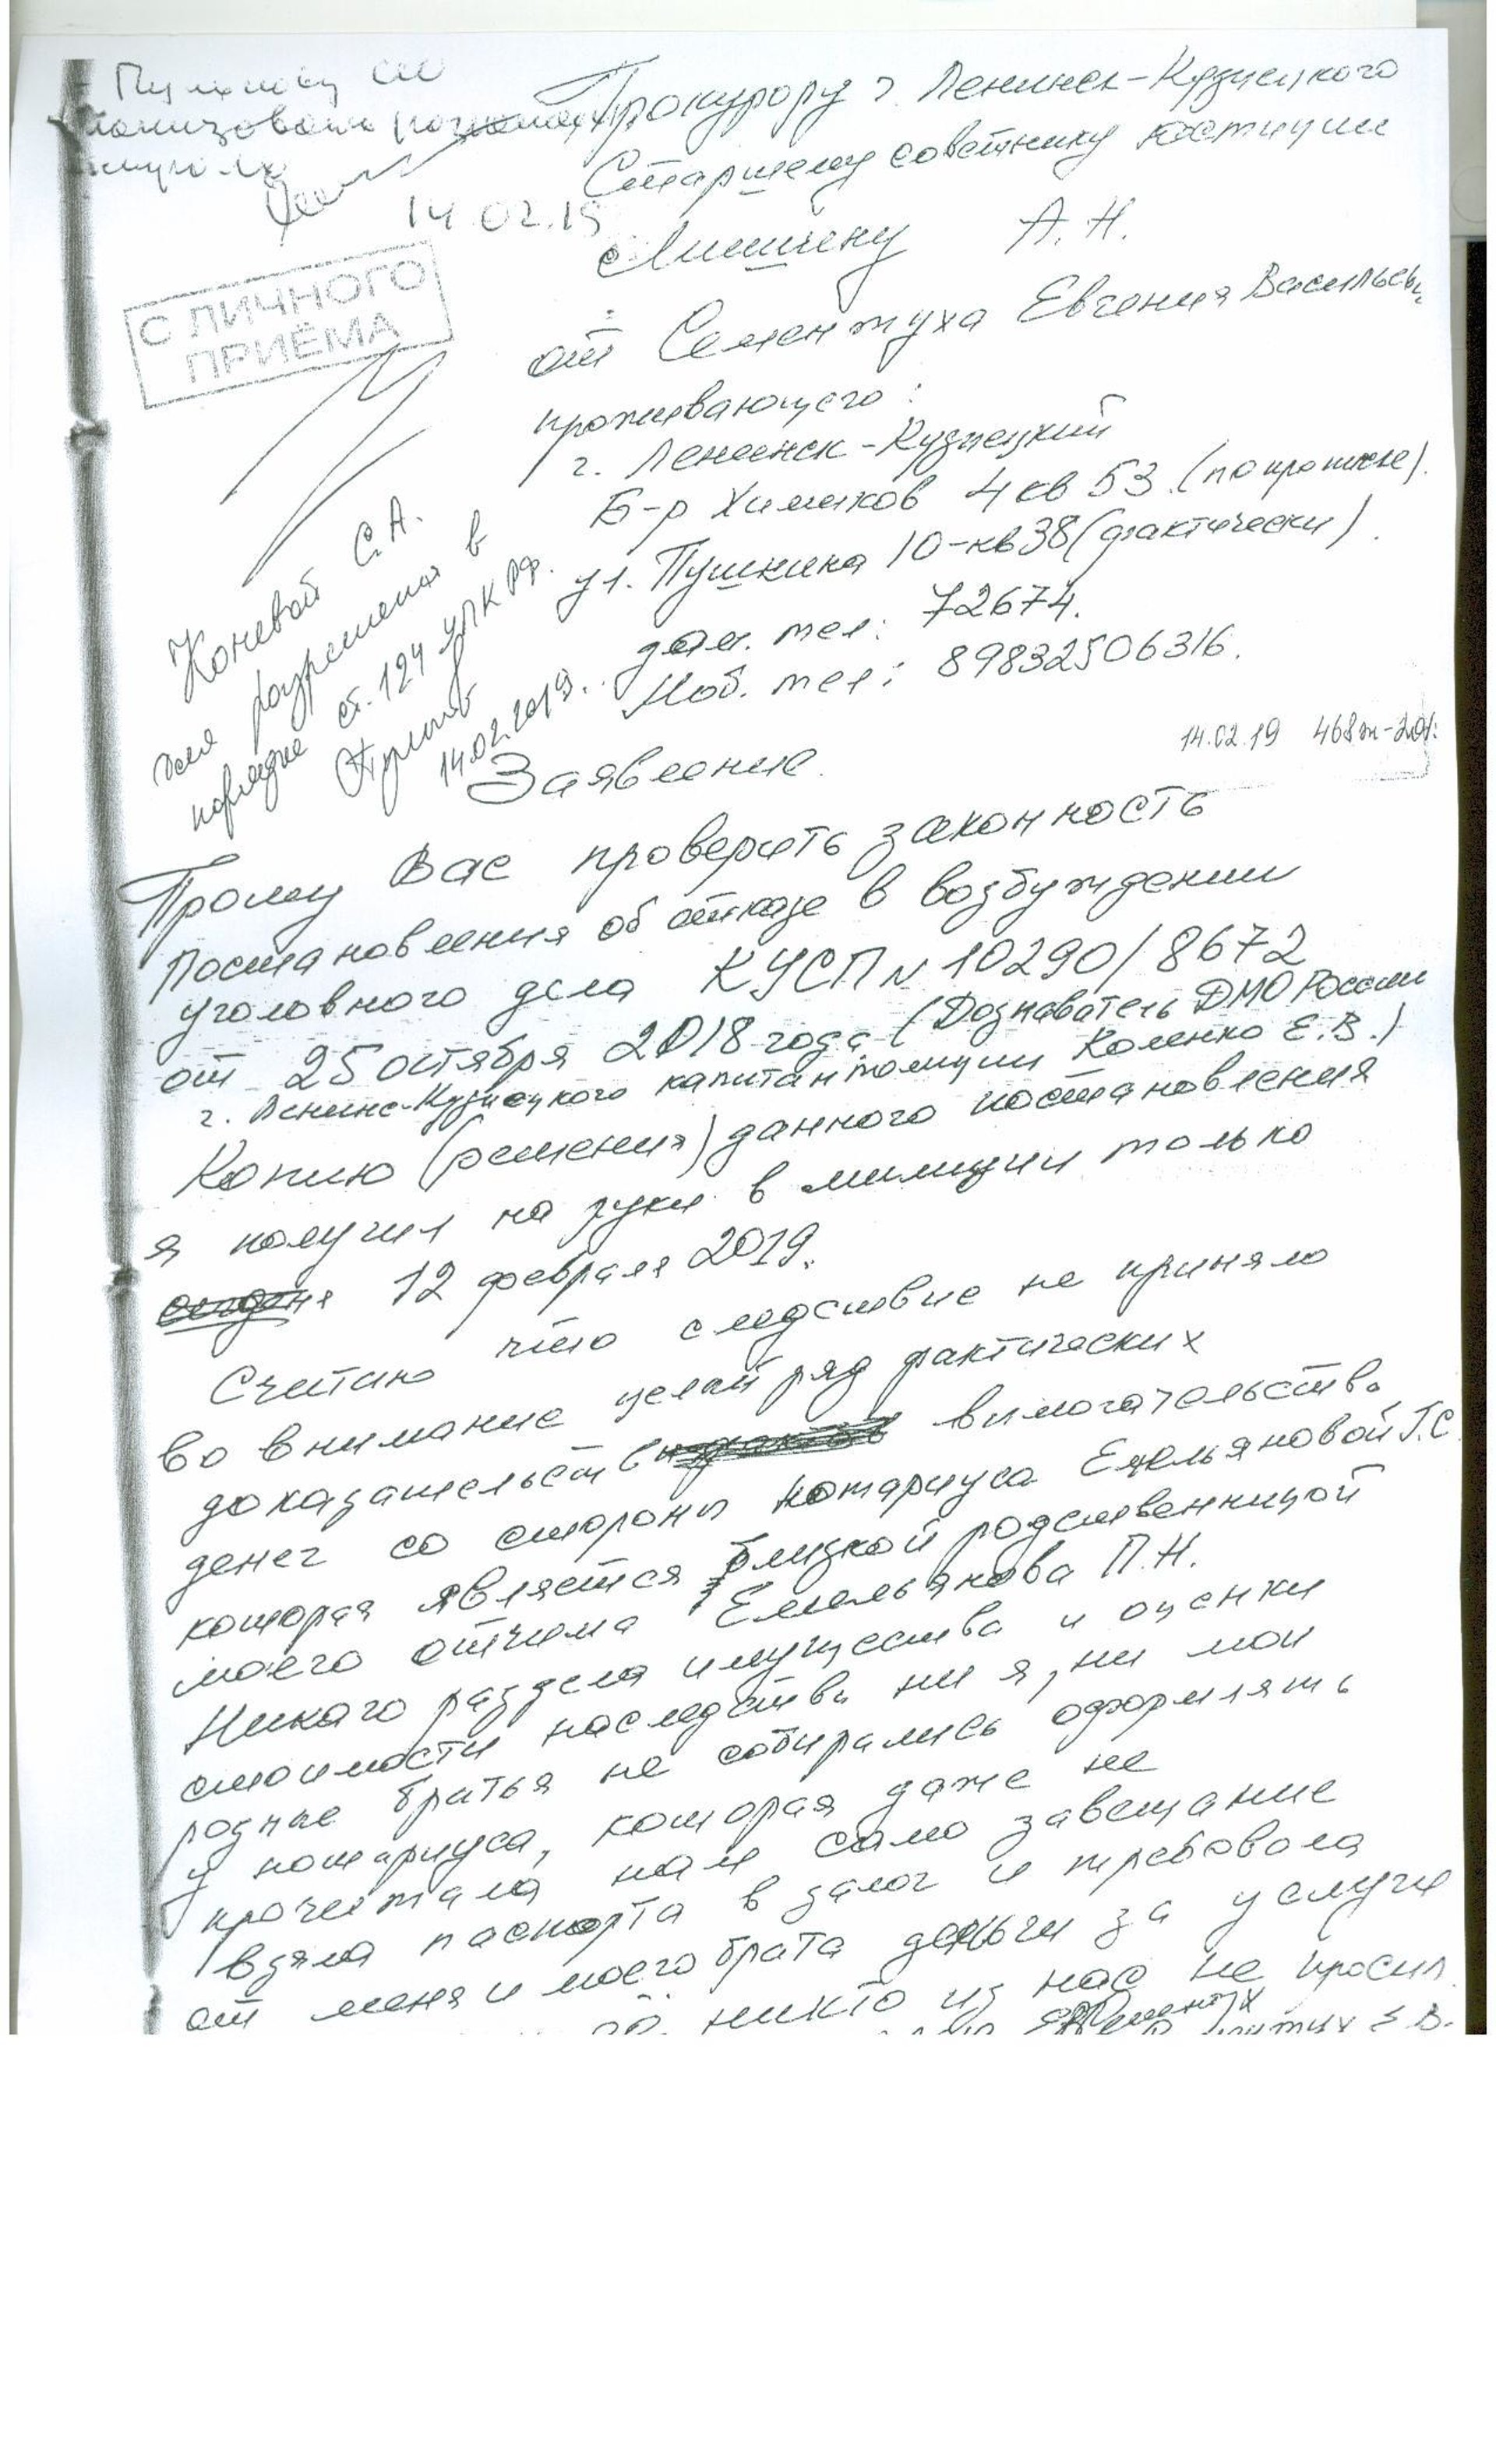 Прокурору г. Ленинск-Кузнецкого
Старшему советнику юстиции
А. Н.
14.02.19
С ЛИЧНОГО
ПРИЁМА
от Сементуха Евгения Васильевич
проживающего:
г. Ленинск-Кузнецкий
Б-р Химиков 4 кв 53 (по прописке).
ул. Пушкина 10-кв 38 (фактически).
дом. тел: 72674.
Моб. тел: 89832506316.
Коневой С.А.
для разрешения в
порядке ст. 124 УПК РФ.
14.02.2019.
14.02.19 468ж-201
Заявление.
Прошу Вас проверить законность
Постановления об отказе в возбуждении
уголовного дела КУСП № 10290/8672
от 25 октября 2018 года (Дознаватель ДМО России
г. Ленинс-Кузнецкого капитан полиции Коленко Е. В.)
Копию (решения) данного постановления
я получил на руки в милиции только
12 февраля 2019.
Считаю что следствие не приняло
во внимание целый ряд фактических
доказательств вимогательства
денег со стороны нотариуса Емельяновой Г.С
которая является близкой родственницой
моего отчима Емельянова П. Н.
Никаго раздела имущества и оценки
стоимости наследства ни я, ни мои
родные братья не собирались оформлять
у нотариуса, которая даже не
прочитала нам само завещание
взяла паспорта в залог и требовала
от меня и моего брата деньги за услуги
никто из нас не просил